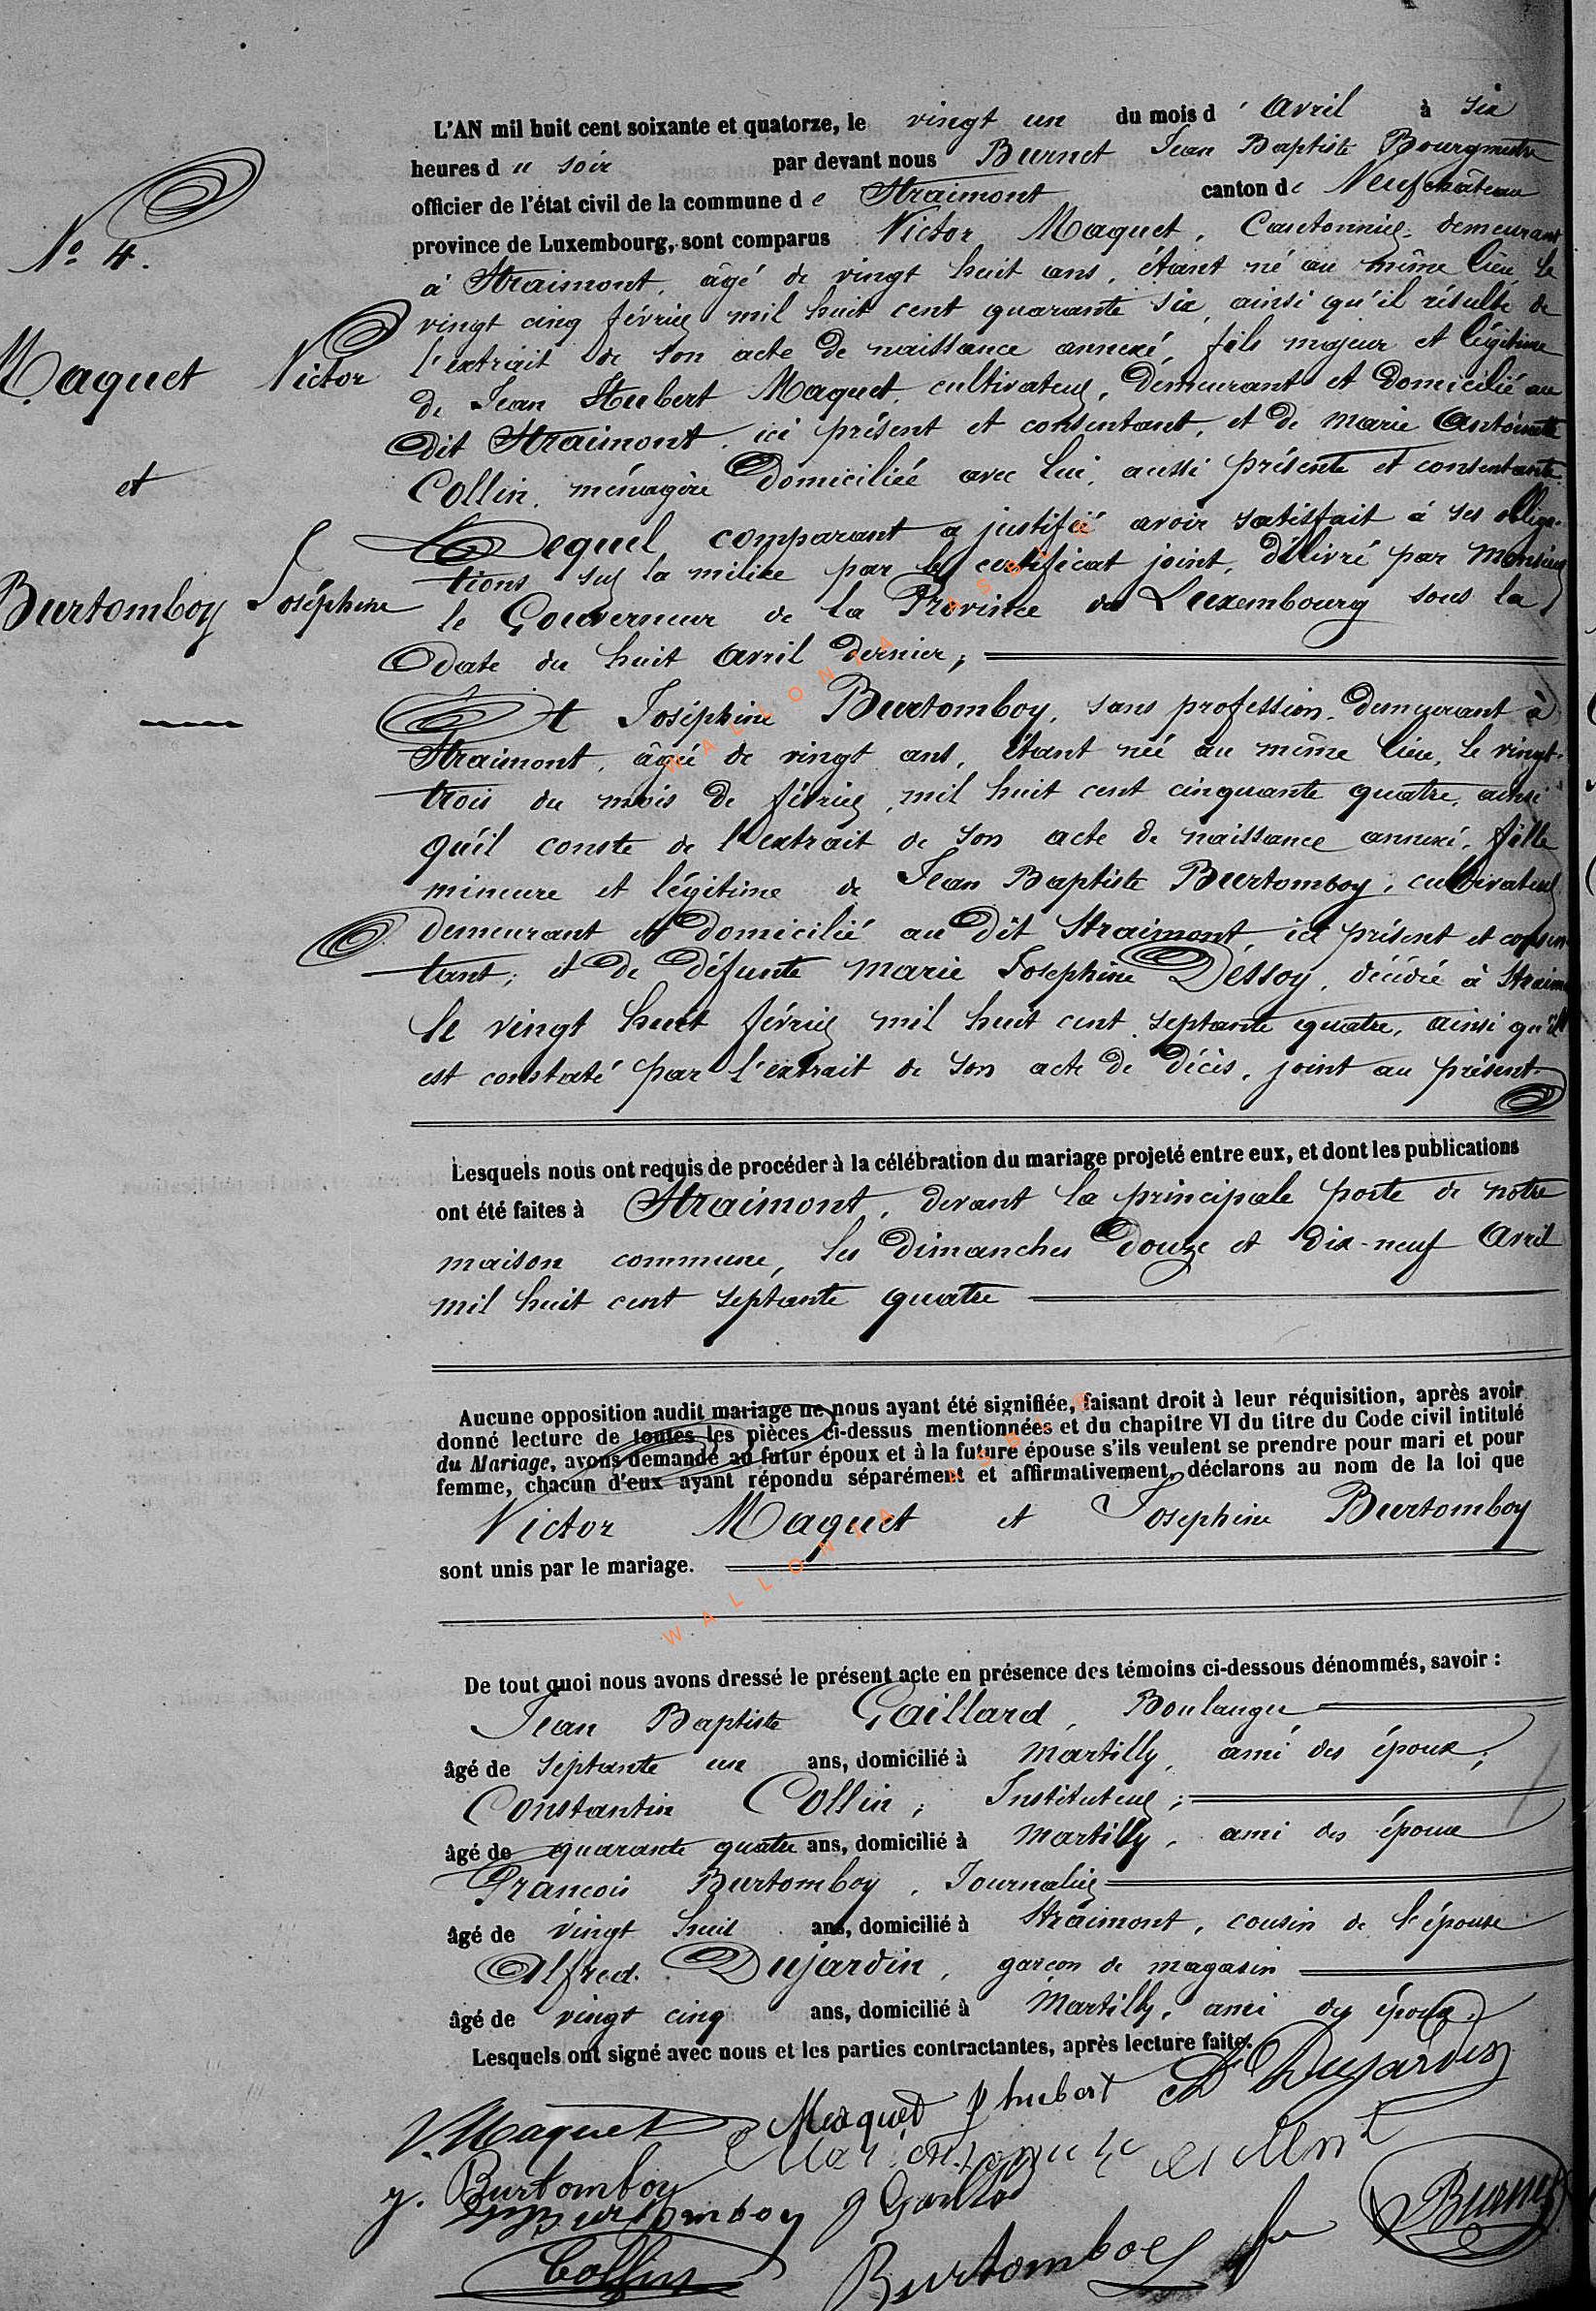 N° 4.
Maquet Victor
et
Burtomboy Joséphine
L'AN mil huit cent soixante et quatorze, le vingt un du mois d'Avril à six
heures du soir par devant nous Burnet Jean Baptiste Bourgmestre
officier de l'état civil de la commune de Straimont canton de Neufchâteau
province de Luxembourg, sont comparus Victor Maquet, Cantonnier, demeurant
à Straimont, âgé de vingt huit ans, étant né au même lieu, le
vingt cinq février mil huit cent quarante six, ainsi qu'il résulte de
l'extrait de son acte de naissance annexé, fils majeur et légitime
de Jean Hubert Maquet, cultivateur, demeurant et domicilié au
dit Straimont, ici présent et consentant, et de Marie Antoinette
Collin, ménagère domiciliée avec lui, aussi présente et consentante.
Lequel comparant a justifié avoir satisfait à ses obliga-
tions sur la milice par le certificat joint, délivré par Monsieur
le Gouverneur de la Province de Luxembourg sous la
date du huit Avril dernier;
Et Joséphine Burtomboy, sans profession, demeurant à
Straimont, âgée de vingt ans, étant née au même lieu, le vingt-
trois du mois de février, mil huit cent cinquante quatre, ainsi
qu'il conste de l'extrait de son acte de naissance annexé, fille
mineure et légitime de Jean Baptiste Burtomboy, cultivateur
demeurant et domicilié au dit Straimont, ici présent et consen-
tant; et de défunte Marie Josephine Dessoy, décédée à Straim
le vingt huit février mil huit cent septante quatre, ainsi qu'il
est constaté par l'extrait de son acte de décès, joint au présent.
Lesquels nous ont requis de procéder à la célébration du mariage projeté entre eux, et dont les publications
ont été faites à Straimont, devant la principale porte de notre
maison commune, les dimanches douze et dix-neuf Avril
mil huit cent septante quatre
Aucune opposition audit mariage ne nous ayant été signifiée, faisant droit à leur réquisition, après avoir
donné lecture de toutes les pièces ci-dessus mentionnées et du chapitre VI du titre du Code civil intitulé
du Mariage, avons demandé au futur époux et à la future épouse s'ils veulent se prendre pour mari et pour
femme, chacun d'eux ayant répondu séparément et affirmativement, déclarons au nom de la loi que
Victor Maquet et Josephine Burtomboy
sont unis par le mariage.
De tout quoi nous avons dressé le présent acte en présence des témoins ci-dessous dénommés, savoir :
Jean Baptiste Gaillard, Boulanger
âgé de septante un ans, domicilié à Martilly, ami des époux;
Constantin Collin, Instituteur;
âgé de quarante quatre ans, domicilié à Martilly, ami des époux
François Burtomboy, Journalier
âgé de vingt huit ans, domicilié à Straimont, cousin de l'épouse
Alfred Dujardin, garçon de magasin
âgé de vingt cinq ans, domicilié à Martilly, ami des époux.
Lesquels ont signé avec nous et les parties contractantes, après lecture faite.
V. Maquet Maquet J hubert Dujardin
J. Burtomboy
Burtomboy
Burnet
Collin Burtomboy
WALLONIA
WALLONIA